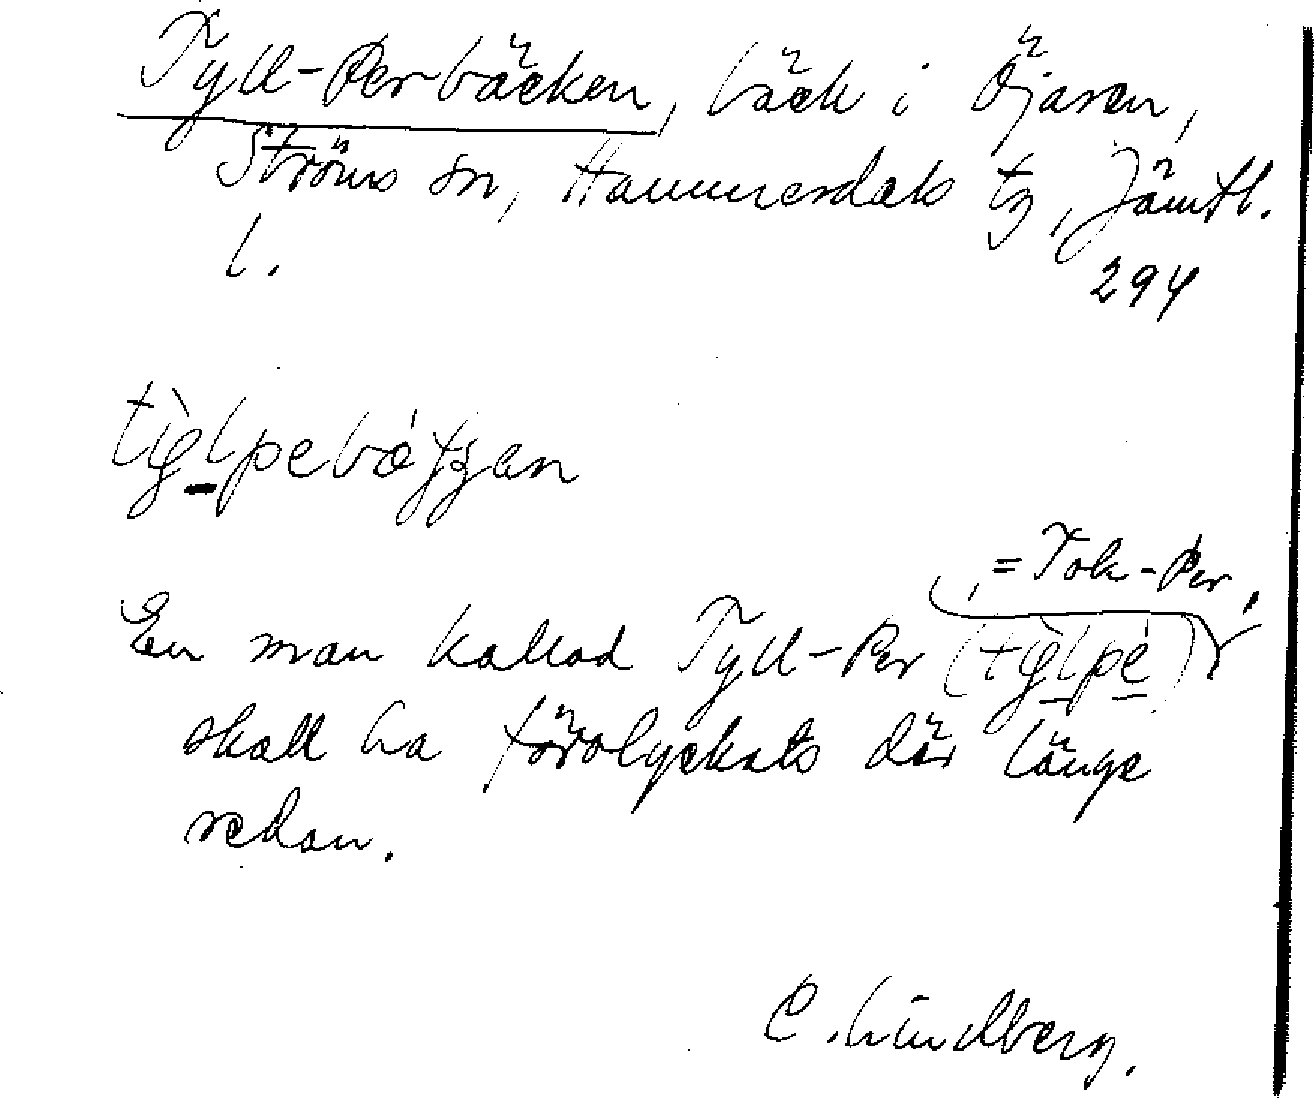 Tyll-Perbäcken, bäck i Öjaren,
Ströms sn, Hammerdals tg, Jämtl.
l.
294
= Tok-Per,
En man kallad Tyll-Per
skall ha förolyckats där länge
sedan.
C. Lindberg.